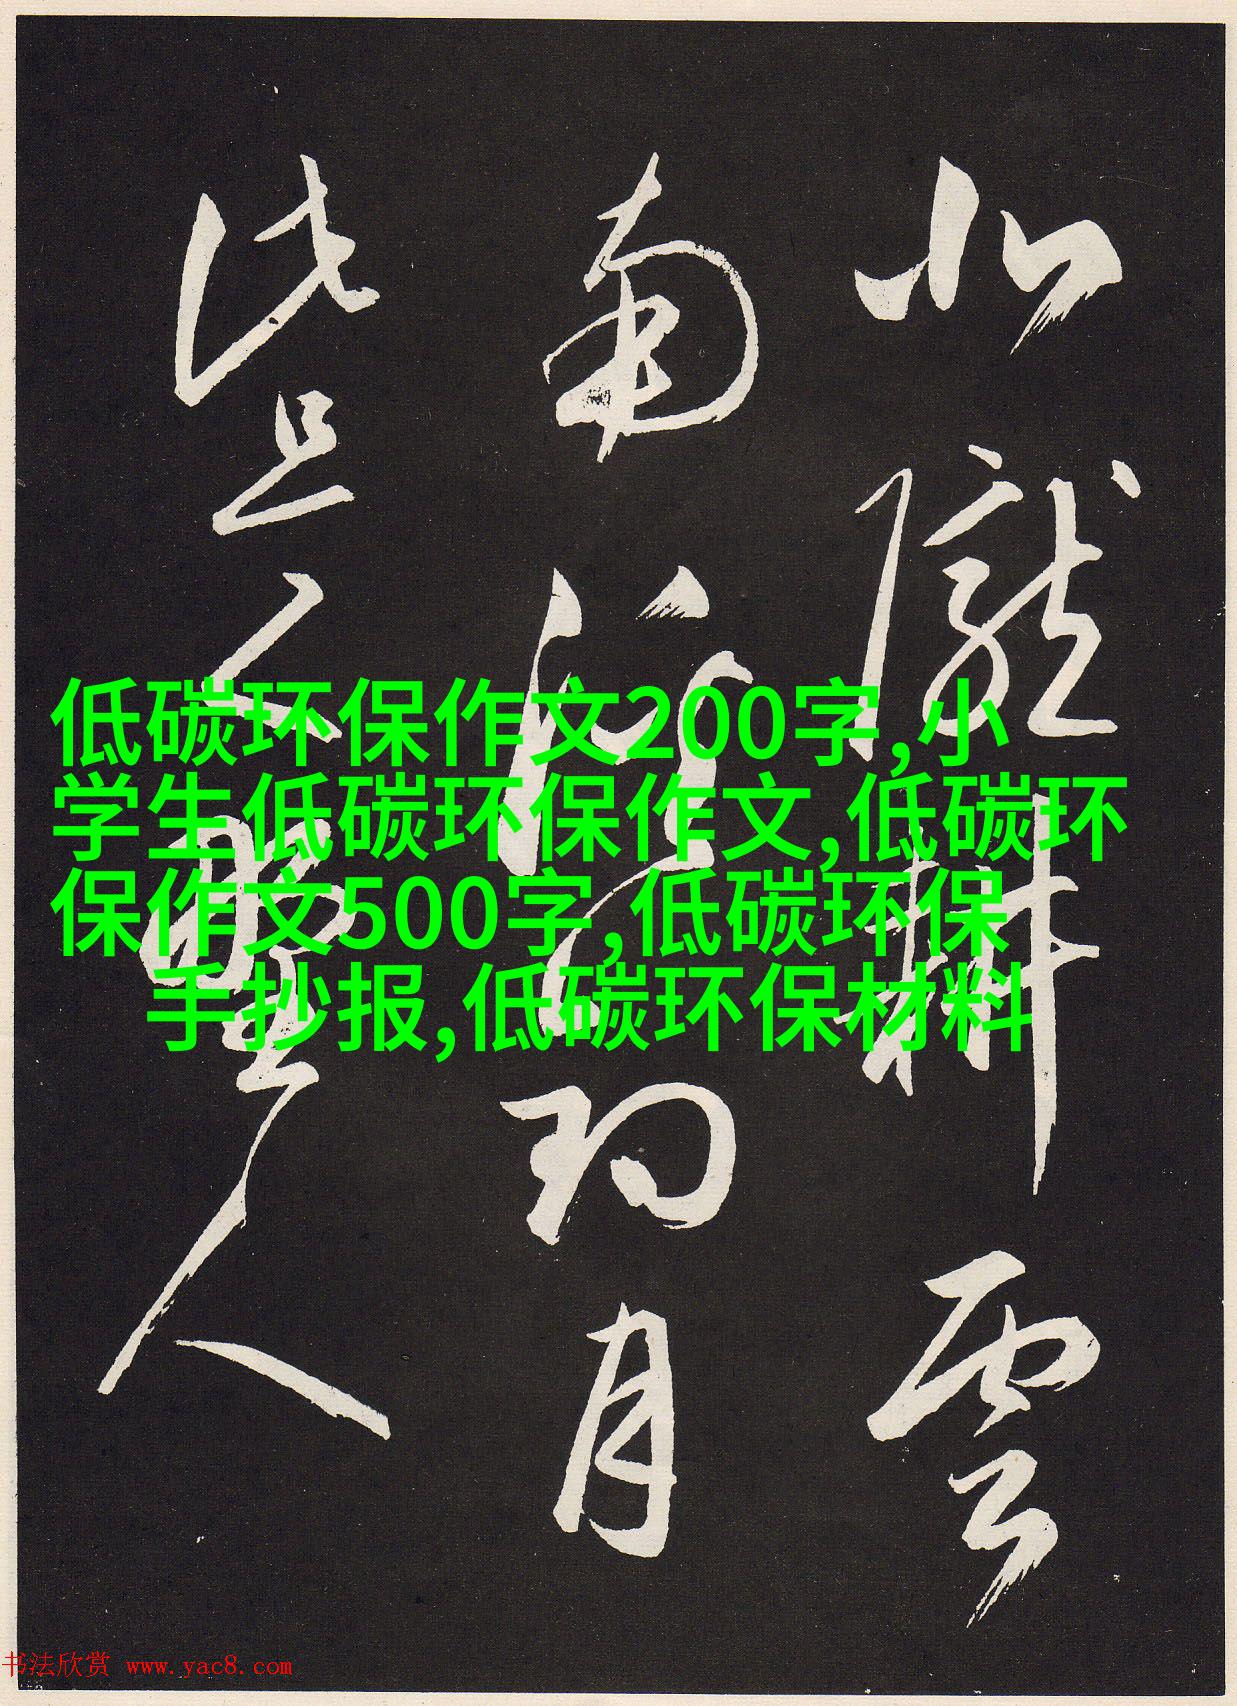 北隴耕雲
南溪釣月
此是野人
低碳环保作文200字,小
学生低碳环保作文,低碳环
保作文500字,低碳环保
手抄报,低碳环保材料
书法欣赏 www.yac8.com